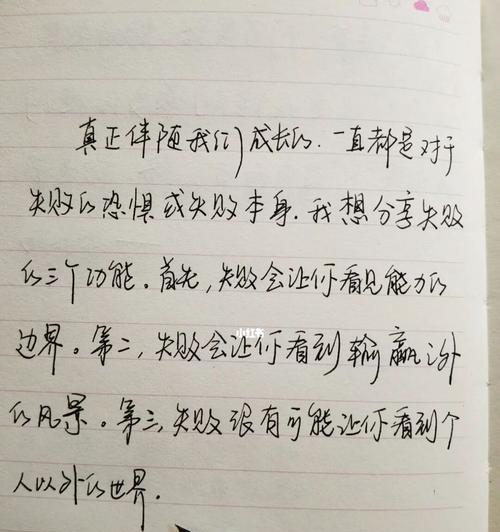 真正伴随我们成长的.一直都是对于
失败的恐惧或失败本身.我想分享失败
的三个功能.首先,失败会让你看见能力的
边界。第二,失败会让你看到输赢之外
的风景。第三,失败很有可能让你看到个
人以外的世界.
小红书